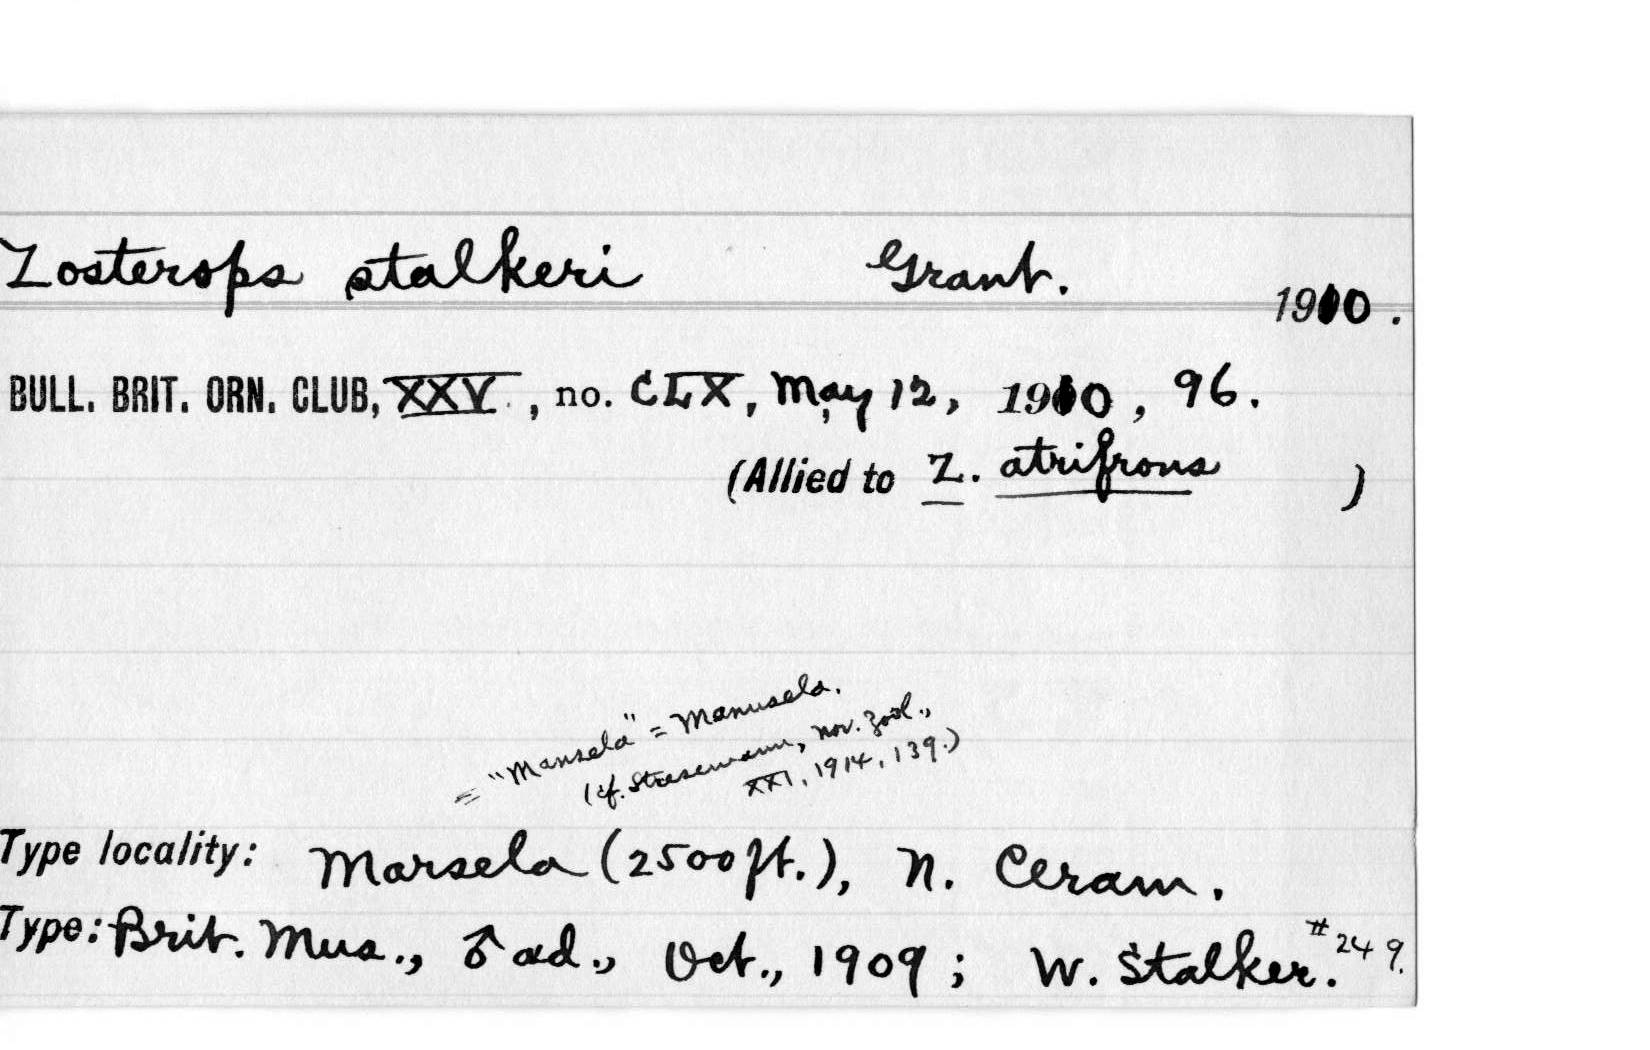 Zosterops stalkeri Grant. 1910.
BULL. BRIT. ORN. CLUB, XXV, no. CLX, May 12, 1910, 96.
(Allied to Z. atrifrons )
= "Mansela" = Manusela.
(cf. Stresemann, Nov. Zool.,
XXI, 1914, 139.)
Type locality: Marsela (2500 ft.), N. Ceram.
Type: Brit. Mus., ♂ ad., Oct., 1909; W. Stalker. #249.